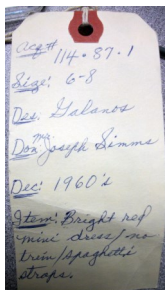 Acq# 114.87.1
Size: 6-8
Des. Galanos
Don: Mr. Joseph Simms
Dec: 1960's
Item: Bright red
mini dress/no
trim/spaghetti
straps.